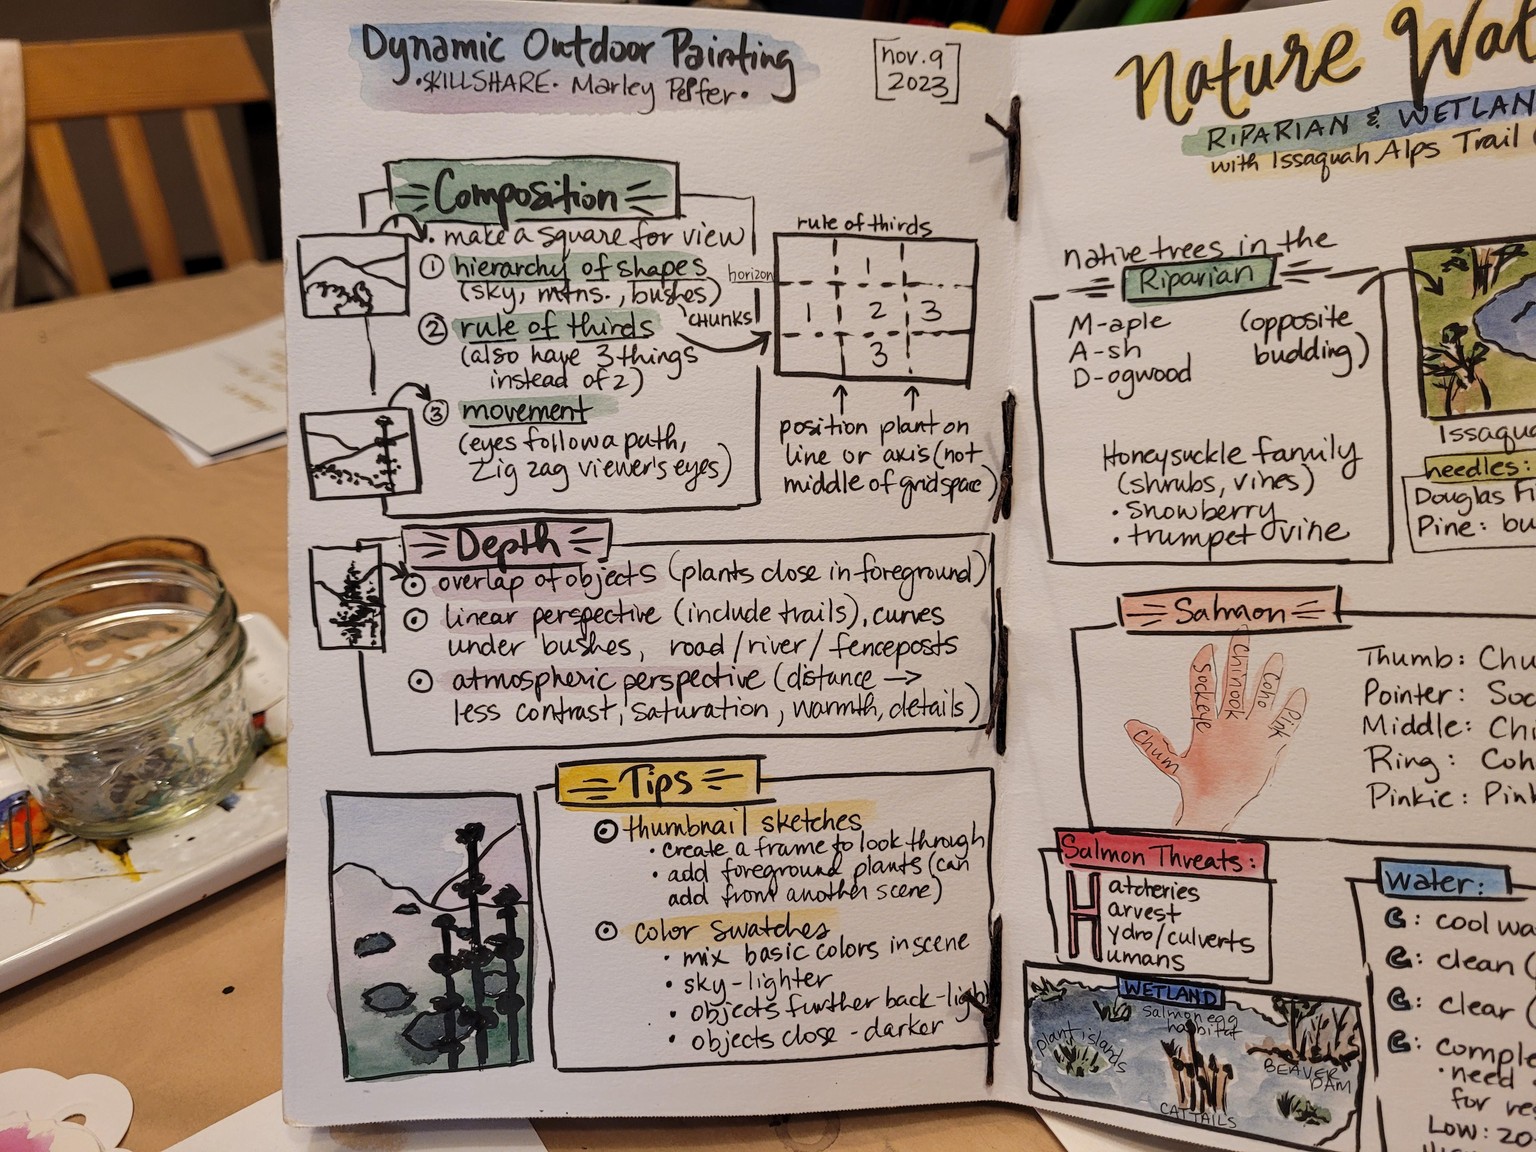 Dynamic Outdoor Painting
·SKILLSHARE· Marley Peifer·
[nov. 9
2023]
Composition
· make a square for view
① hierarchy of shapes
(sky, mtns., bushes)
② rule of thirds
(also have 3 things
instead of 2)
③ movement
(eyes follow a path,
Zig zag viewer's eyes)
horizon
CHUNKS
rule of thirds
1
1 2 3
3
position plant on
line or axis (not
middle of gridspace)
Depth
⊙ overlap of objects (plants close in foreground)
⊙ linear perspective (include trails), curves
under bushes, road/river/fenceposts
⊙ atmospheric perspective (distance →
less contrast, saturation, warmth, details)
Tips
⊙ thumbnail sketches
· create a frame to look through
· add foreground plants (can
add from another scene)
⊙ color swatches
· mix basic colors in scene
· sky-lighter
· objects further back-light
· objects close - darker
Nature Wat
RIPARIAN & WETLAND
with Issaquah Alps Trail
native trees in the
Riparian
M-aple (opposite
A-sh budding)
D-ogwood
Honeysuckle family
(shrubs, vines)
· Snowberry
· trumpet vine
Issaqua
needles:
Douglas Fi
Pine: bu
Salmon
Chum
Sockeye
Chinook
Coho
Pink
Thumb: Chu
Pointer: Soc
Middle: Chi
Ring: Coh
Pinkie: Pink
Salmon Threats:
Hatcheries
arvest
ydro/culverts
umans
WETLAND
Salmon egg
habitat
plant islands
BEAVER
DAM
CATTAILS
Water:
C: cool wa
C: clean (
C: clear (
C: comple
· need
for re
Low: 20